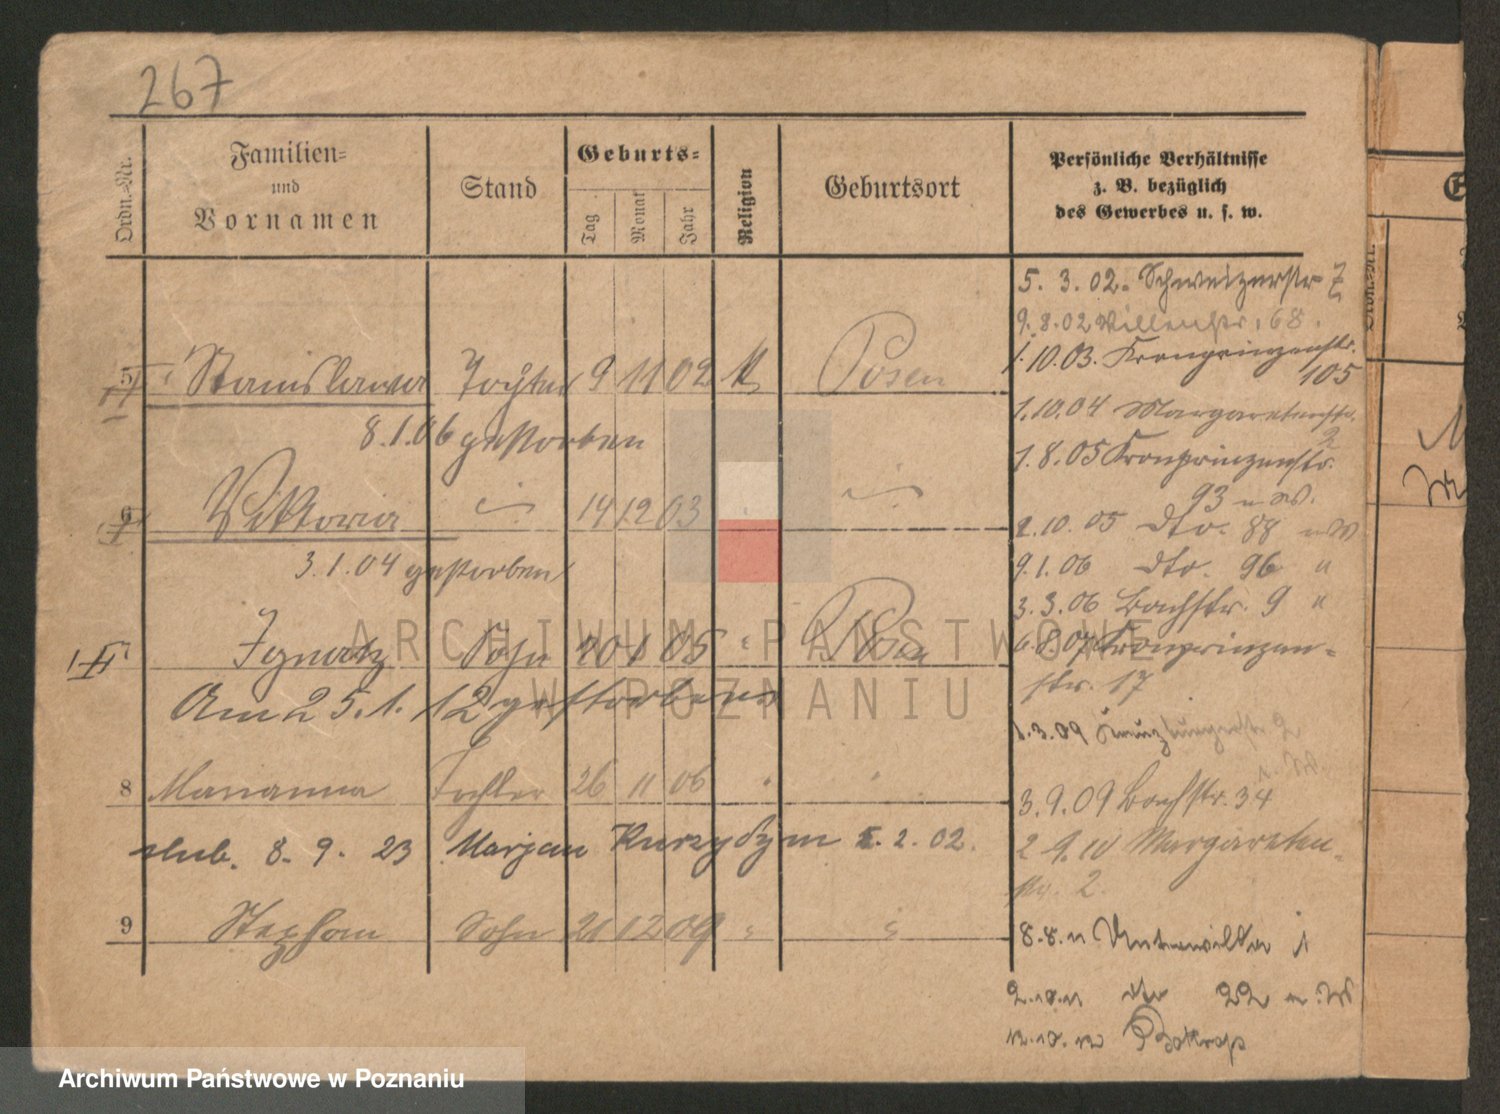 267
Ordn.-Nr.
Familien-
und
Vornamen
Stand
Geburts-
Tag
Monat
Jahr
Religion
Geburtsort
Persönliche Verhältnisse
z. B. bezüglich
des Gewerbes u. s. w.
5 Stanislawa Tochter 9 11 02 K Posen
8.1.06 gestorben
6 Viktoria 14 12 03
3.1.04 gestorben
7 Ignatz Sohn 20 1 05 " Posen
Am 25.1.12 gestorben
8 Marianna Tochter 26 11 06 "
slub. 8.9.23 Marjan Kurzydym 2.02.
9 Stephan Sohn 21 12 09 "
5.3.02. Schweizerstr 7
9.8.02 Villenstr. 68.
1.10.03. Kronprinzenstr.
105
1.10.04 Margaretenstr.
2
1.8.05 Kronprinzenstr.
93
10.05 dto. 88
9.1.06 dto. 96 "
3.3.06 Bachstr. 9 "
6.8.07 Kronprinzen-
str. 17
1.3.09 Kreuzburgerstr. 2
3.9.09 Bachstr. 34
2.9.10 Margareten-
str. 2.
8.8.11 Unterwilda 1
2.10.11 dto 22
12.10.12 Bottrop
ARCHIWUM PAŃSTWOWE
W POZNANIU
Archiwum Państwowe w Poznaniu